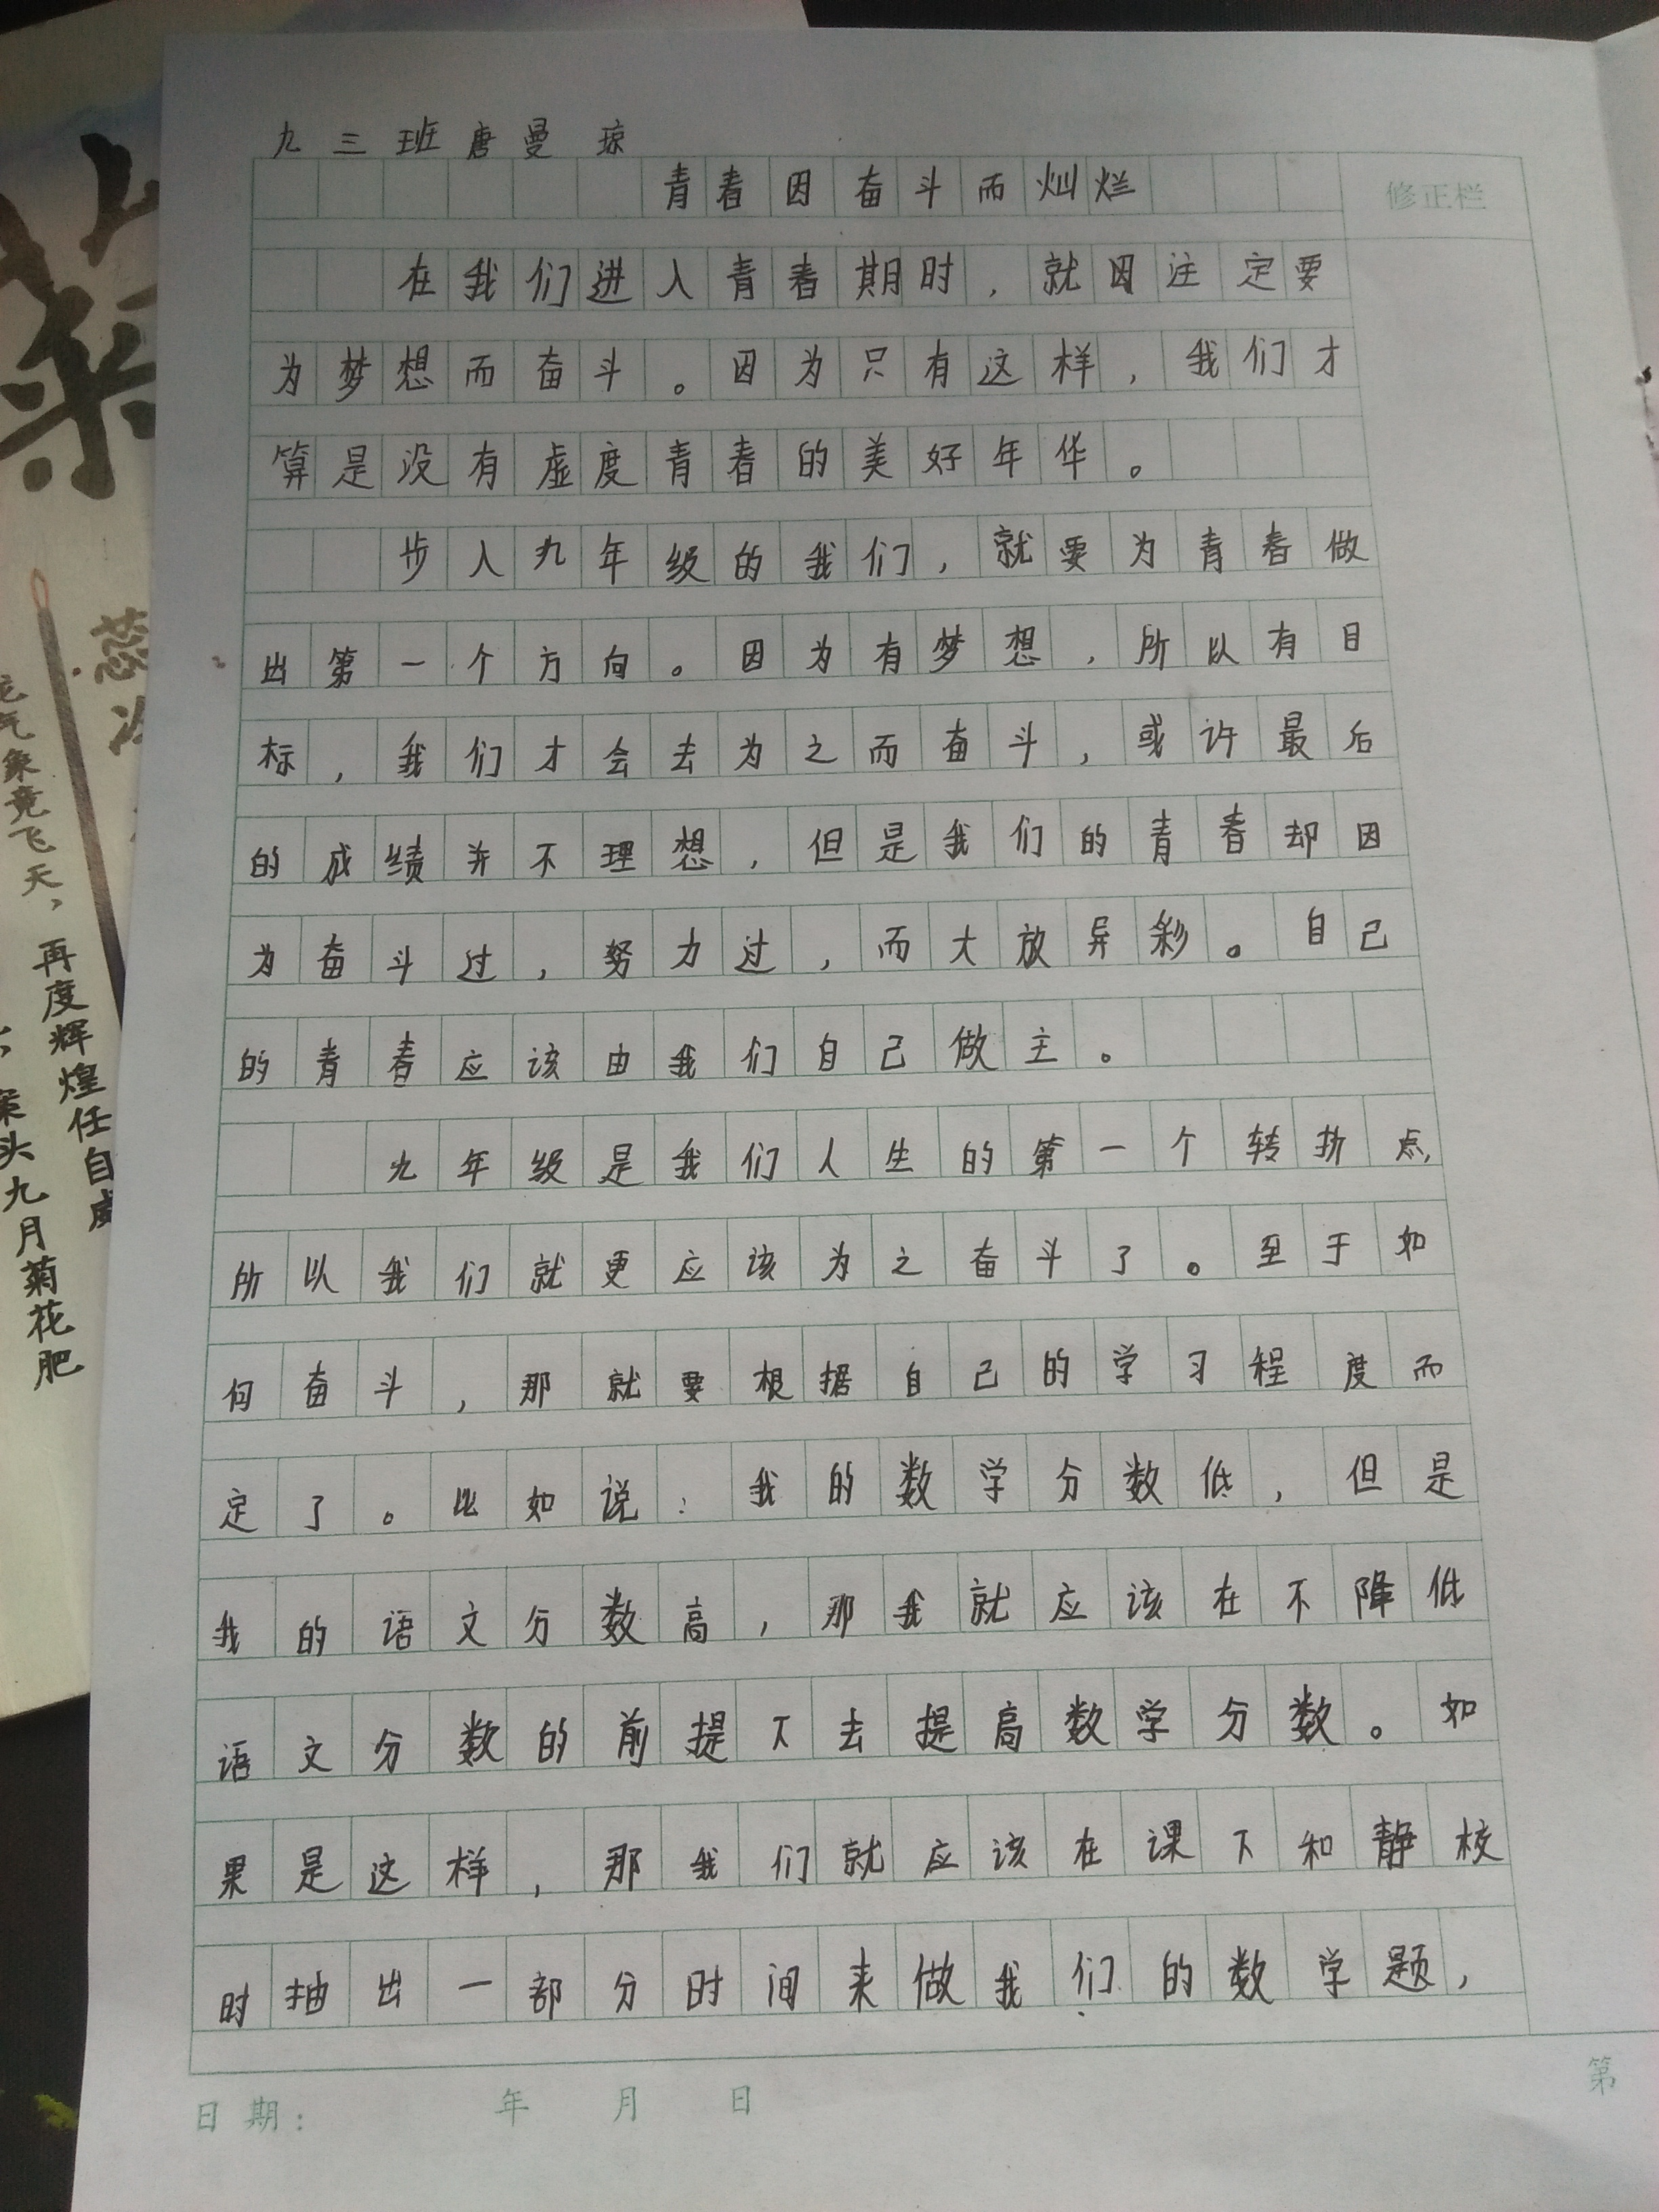 九三班唐曼琼
青春因奋斗而灿烂
修正栏
在我们进入青春期时，就因注定要
为梦想而奋斗。因为只有这样，我们才
算是没有虚度青春的美好年华。
步入九年级的我们，就要为青春做
出第一个方向。因为有梦想，所以有目
标，我们才会去为之而奋斗，或许最后
的成绩并不理想，但是我们的青春却因
为奋斗过，努力过，而大放异彩。自己
的青春应该由我们自己做主。
九年级是我们人生的第一个转折点，
所以我们就更应该为之奋斗了。至于如
何奋斗，那就要根据自己的学习程度而
定了。比如说：我的数学分数低，但是
我的语文分数高，那我就应该在不降低
语文分数的前提下去提高数学分数。如
果是这样，那我们就应该在课下和静校
时抽出一部分时间来做我们的数学题，
日期： 年 月 日
第
蕊
气象竞飞天，
再度辉煌任自
头九月菊花肥